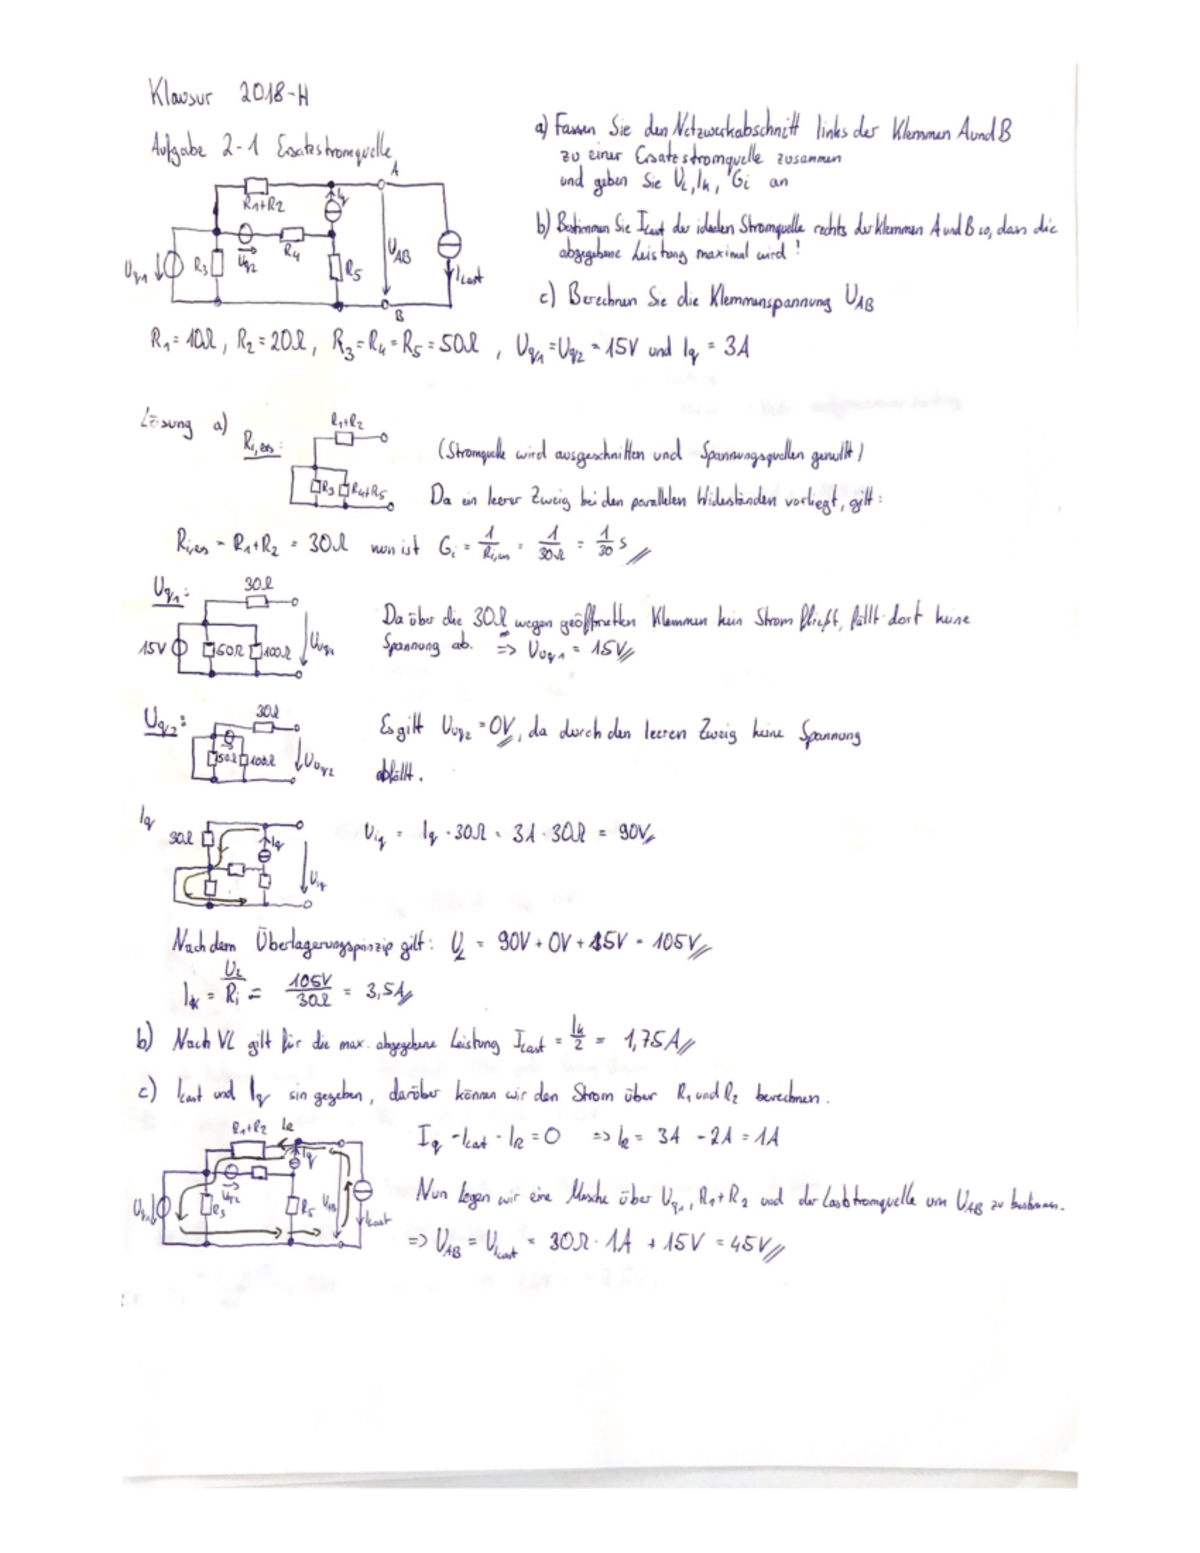 Klausur 2018-H
Aufgabe 2-1 Ersatzstromquelle
a) Fassen Sie den Netzwerkabschnitt links der Klemmen A und B
zu einer Ersatzstromquelle zusammen
und geben Sie UL, Ik, Gi an
b) Bestimmen Sie ILast der idealen Stromquelle rechts der Klemmen A und B so, dass die
abgegebene Leistung maximal wird!
c) Berechnen Sie die Klemmenspannung UAB
A
R1+R2
Iq
Uq1
R3
Uq2
R4
R5
UAB
ILast
B
R1 = 10Ω, R2 = 20Ω, R3 = R4 = R5 = 50Ω, Uq1 = Uq2 = 15V und Iq = 3A
Lösung a)
Ri,ers:
R1+R2
R3
R4+R5
(Stromquelle wird ausgeschnitten und Spannungsquellen genullt)
Da ein leerer Zweig bei den parallelen Widerständen vorliegt, gilt:
Ri,ers = R1+R2 = 30Ω nun ist Gi = 1/Ri,ers = 1/30Ω = 1/30 S
Uq1:
30Ω
15V
50Ω
100Ω
UUq1
Da über die 30Ω wegen geöffneten Klemmen kein Strom fließt, fällt dort keine
Spannung ab. => UUq1 = 15V
Uq2:
30Ω
50Ω
100Ω
UUq2
Es gilt UUq2 = 0V, da durch den leeren Zweig keine Spannung
abfällt.
Iq
30Ω
Iq
UIq
UIq = Iq · 30Ω = 3A · 30Ω = 90V
Nach dem Überlagerungsprinzip gilt: UL = 90V + 0V + 15V = 105V
Ik = UL/Ri = 105V/30Ω = 3,5A
b) Nach VL gilt für die max. abgegebene Leistung ILast = Ik/2 = 1,75A
c) ILast und Iq sin gegeben, darüber können wir den Strom über R1 und R2 berechnen.
R1+R2
IR
Iq
Uq1
R3
Uq2
R5
UAB
ILast
Iq - ILast - IR = 0 => IR = 3A - 2A = 1A
Nun legen wir eine Masche über Uq1, R1+R2 und der Laststromquelle um UAB zu bestimmen.
=> UAB = UILast = 30Ω · 1A + 15V = 45V